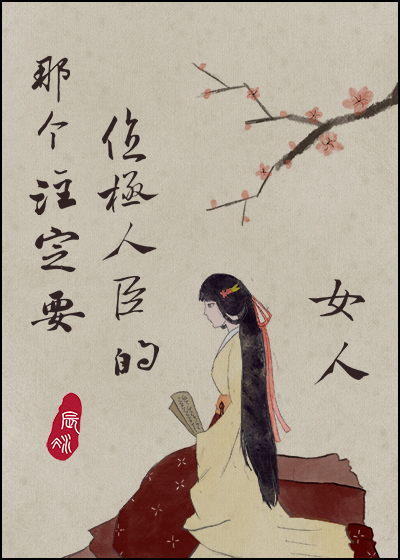 那个注定要
位極人臣的
女人
辰